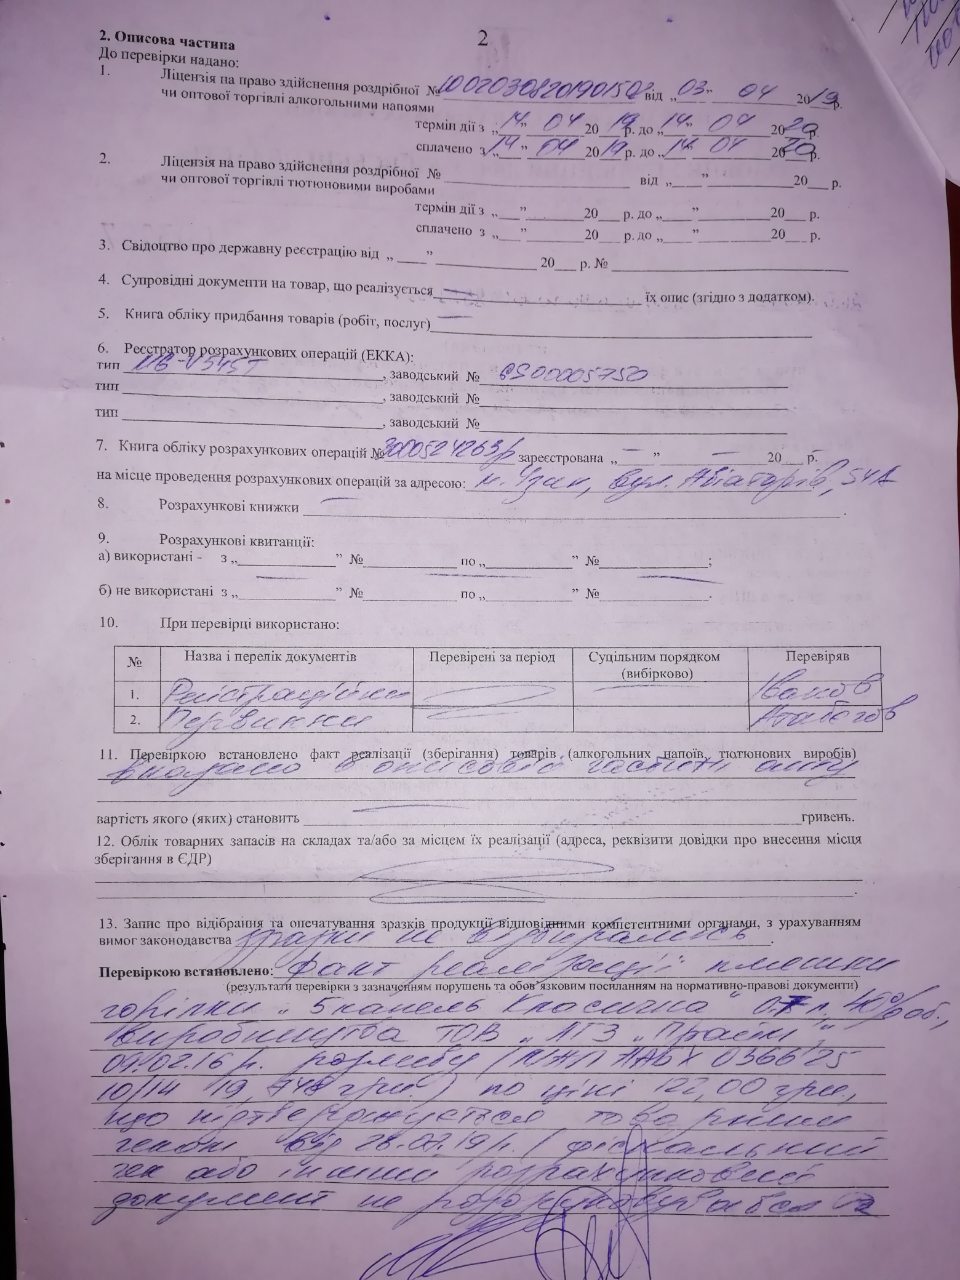 2
2. Описова частина
До перевірки надано:
1. Ліцензія на право здійснення роздрібної № від „03” 04 2019 р.
чи оптової торгівлі алкогольними напоями
термін дії з „14” 04 2019 р. до „14” 04 2020 р.
сплачено з „14” 04 2019 р. до „14” 04 2020 р.
2. Ліцензія на право здійснення роздрібної № ___ від „___” ___ 20___ р.
чи оптової торгівлі тютюновими виробами
термін дії з „___” ___ 20___ р. до „___” ___ 20___ р.
сплачено з „___” ___ 20___ р. до „___” ___ 20___ р.
3. Свідоцтво про державну реєстрацію від „___” ___ 20___ р. № ___
4. Супровідні документи на товар, що реалізується — їх опис (згідно з додатком).
5. Книга обліку придбання товарів (робіт, послуг) —
6. Реєстратор розрахункових операцій (ЕККА):
тип , заводський №
тип ___, заводський № ___
тип ___, заводський № ___
7. Книга обліку розрахункових операцій № 3000524263р зареєстрована „—” — 20 — р.
на місце проведення розрахункових операцій за адресою: м. вул. Авіаторів, 54А
8. Розрахункові книжки —.
9. Розрахункові квитанції:
а) використані - з „___” № ___ по „___” № ___;
б) не використані з „___” № ___ по „___” № ___.
10. При перевірці використано:
№ Назва і перелік документів Перевірені за період Суцільним порядком (вибірково) Перевіряв
1. Реєстраційні Іванов
2. Первинні
11. Перевіркою встановлено факт реалізації (зберігання) товарів (алкогольних напоїв, тютюнових виробів)
вказано в описовій частині акту
вартість якого (яких) становить — гривень.
12. Облік товарних запасів на складах та/або за місцем їх реалізації (адреса, реквізити довідки про внесення місця
зберігання в ЄДР)
13. Запис про відібрання та опечатування зразків продукції відповідними компетентними органами, з урахуванням
вимог законодавства зразки не відбирались.
Перевіркою встановлено: факт реалізації пляшки
(результати перевірки з зазначенням порушень та обов’язковим посиланням на нормативно-правові документи)
горілки „5 Класична” 0,7 л, 40% об.,
виробництва ТОВ „ЛГЗ „Прайм”,
р. розливу
10/14 грн.) по ціні грн.,
що підтверджується товарним
чеком від р. (фіскальний
чек або інший розрахунковий
документ не роздруковувався